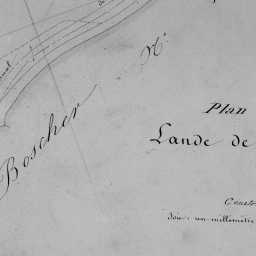 Boscher
N.
Plan
Lande de
doie: un millimètre